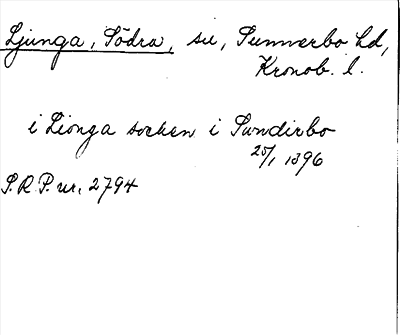 Ljunga, Södra, sn, Sunnerbo hd,
Kronob. l.
i Lionga socken i Sundirbo
25/1 1396
S.R.P. nr. 2794